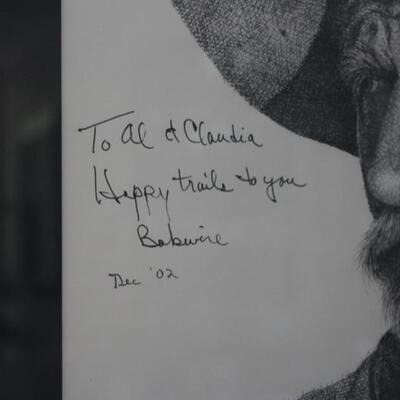 To Al & Claudia
Happy trails to you
Bobwire
Dec '02